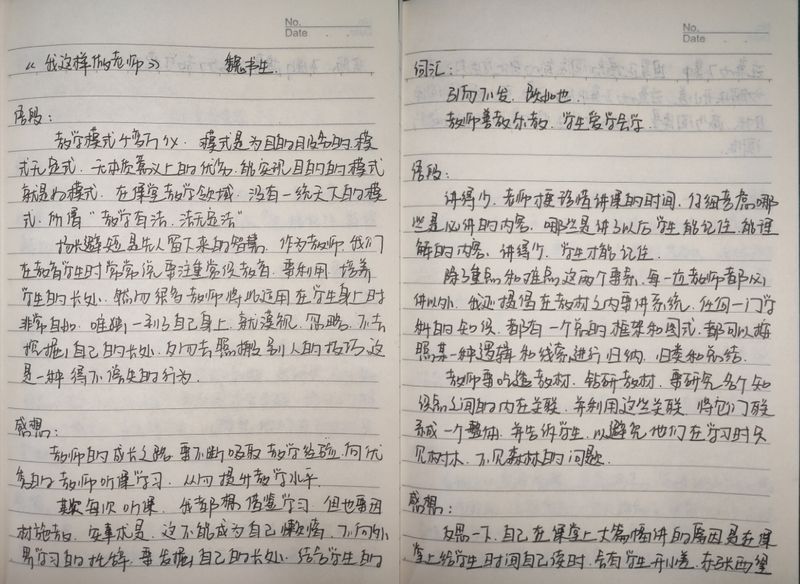 No.
Date
《我这样做老师》 魏书生
语段:
教学模式千变万化，模式是为目的服务的，模
式无定式，无本质意义上的优劣，能实现目的的模式
就是好模式，在课堂教学领域，没有一统天下的模
式，所谓“教学有法，法无定法”
扬长避短是先人留下来的智慧，作为教师，我们
在教育学生时常常说要注重赏识教育，要利用、培养
学生的长处，然而很多教师将此运用在学生身上时
非常自如，唯独一到了自己身上，就漠视、忽略，不去
挖掘自己的长处，反而去照搬别人的技巧，这
是一种得不偿失的行为.
感想:
教师的成长之路要不断吸取教学经验，向优
秀的教师听课学习，从而提升教学水平.
其实每次听课，我都想借鉴学习，但也要因
材施教，实事求是，这不能成为自己懒惰、不向外
界学习的托辞，要发掘自己的长处，结合学生的
No.
Date
词汇:
引而不发，跃如也.
教师善教乐教，学生爱学会学
语段:
讲得少，老师更珍惜讲课的时间，仔细考虑哪
些是必讲的内容，哪些是讲了以后学生能记住、能理
解的内容，讲得少，学生才能记住.
除了重点和难点这两个要素，每一位教师都必
讲以外，我还提倡在教材之内要讲系统，任何一门学
科的知识，都有一个总的框架和图式，都可以按
照某一种逻辑和线索进行归纳、归类和总结.
教师要吃透教材、钻研教材，要研究各个知
识点之间的内在关联，并利用这些关联，将它们联
系成一个整体，并告诉学生，以避免他们在学习时只
见树木、不见森林的问题.
感想:
反思一下，自己在课堂上大篇幅讲的原因是在课
堂上给学生时间自己读时，会有学生开小差，东张西望